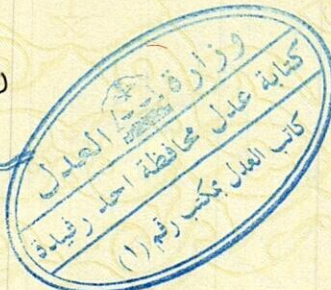 وزارة العدل
كتابة عدل محافظة احد رفيدة
كاتب العدل بمكتب رقم (١)